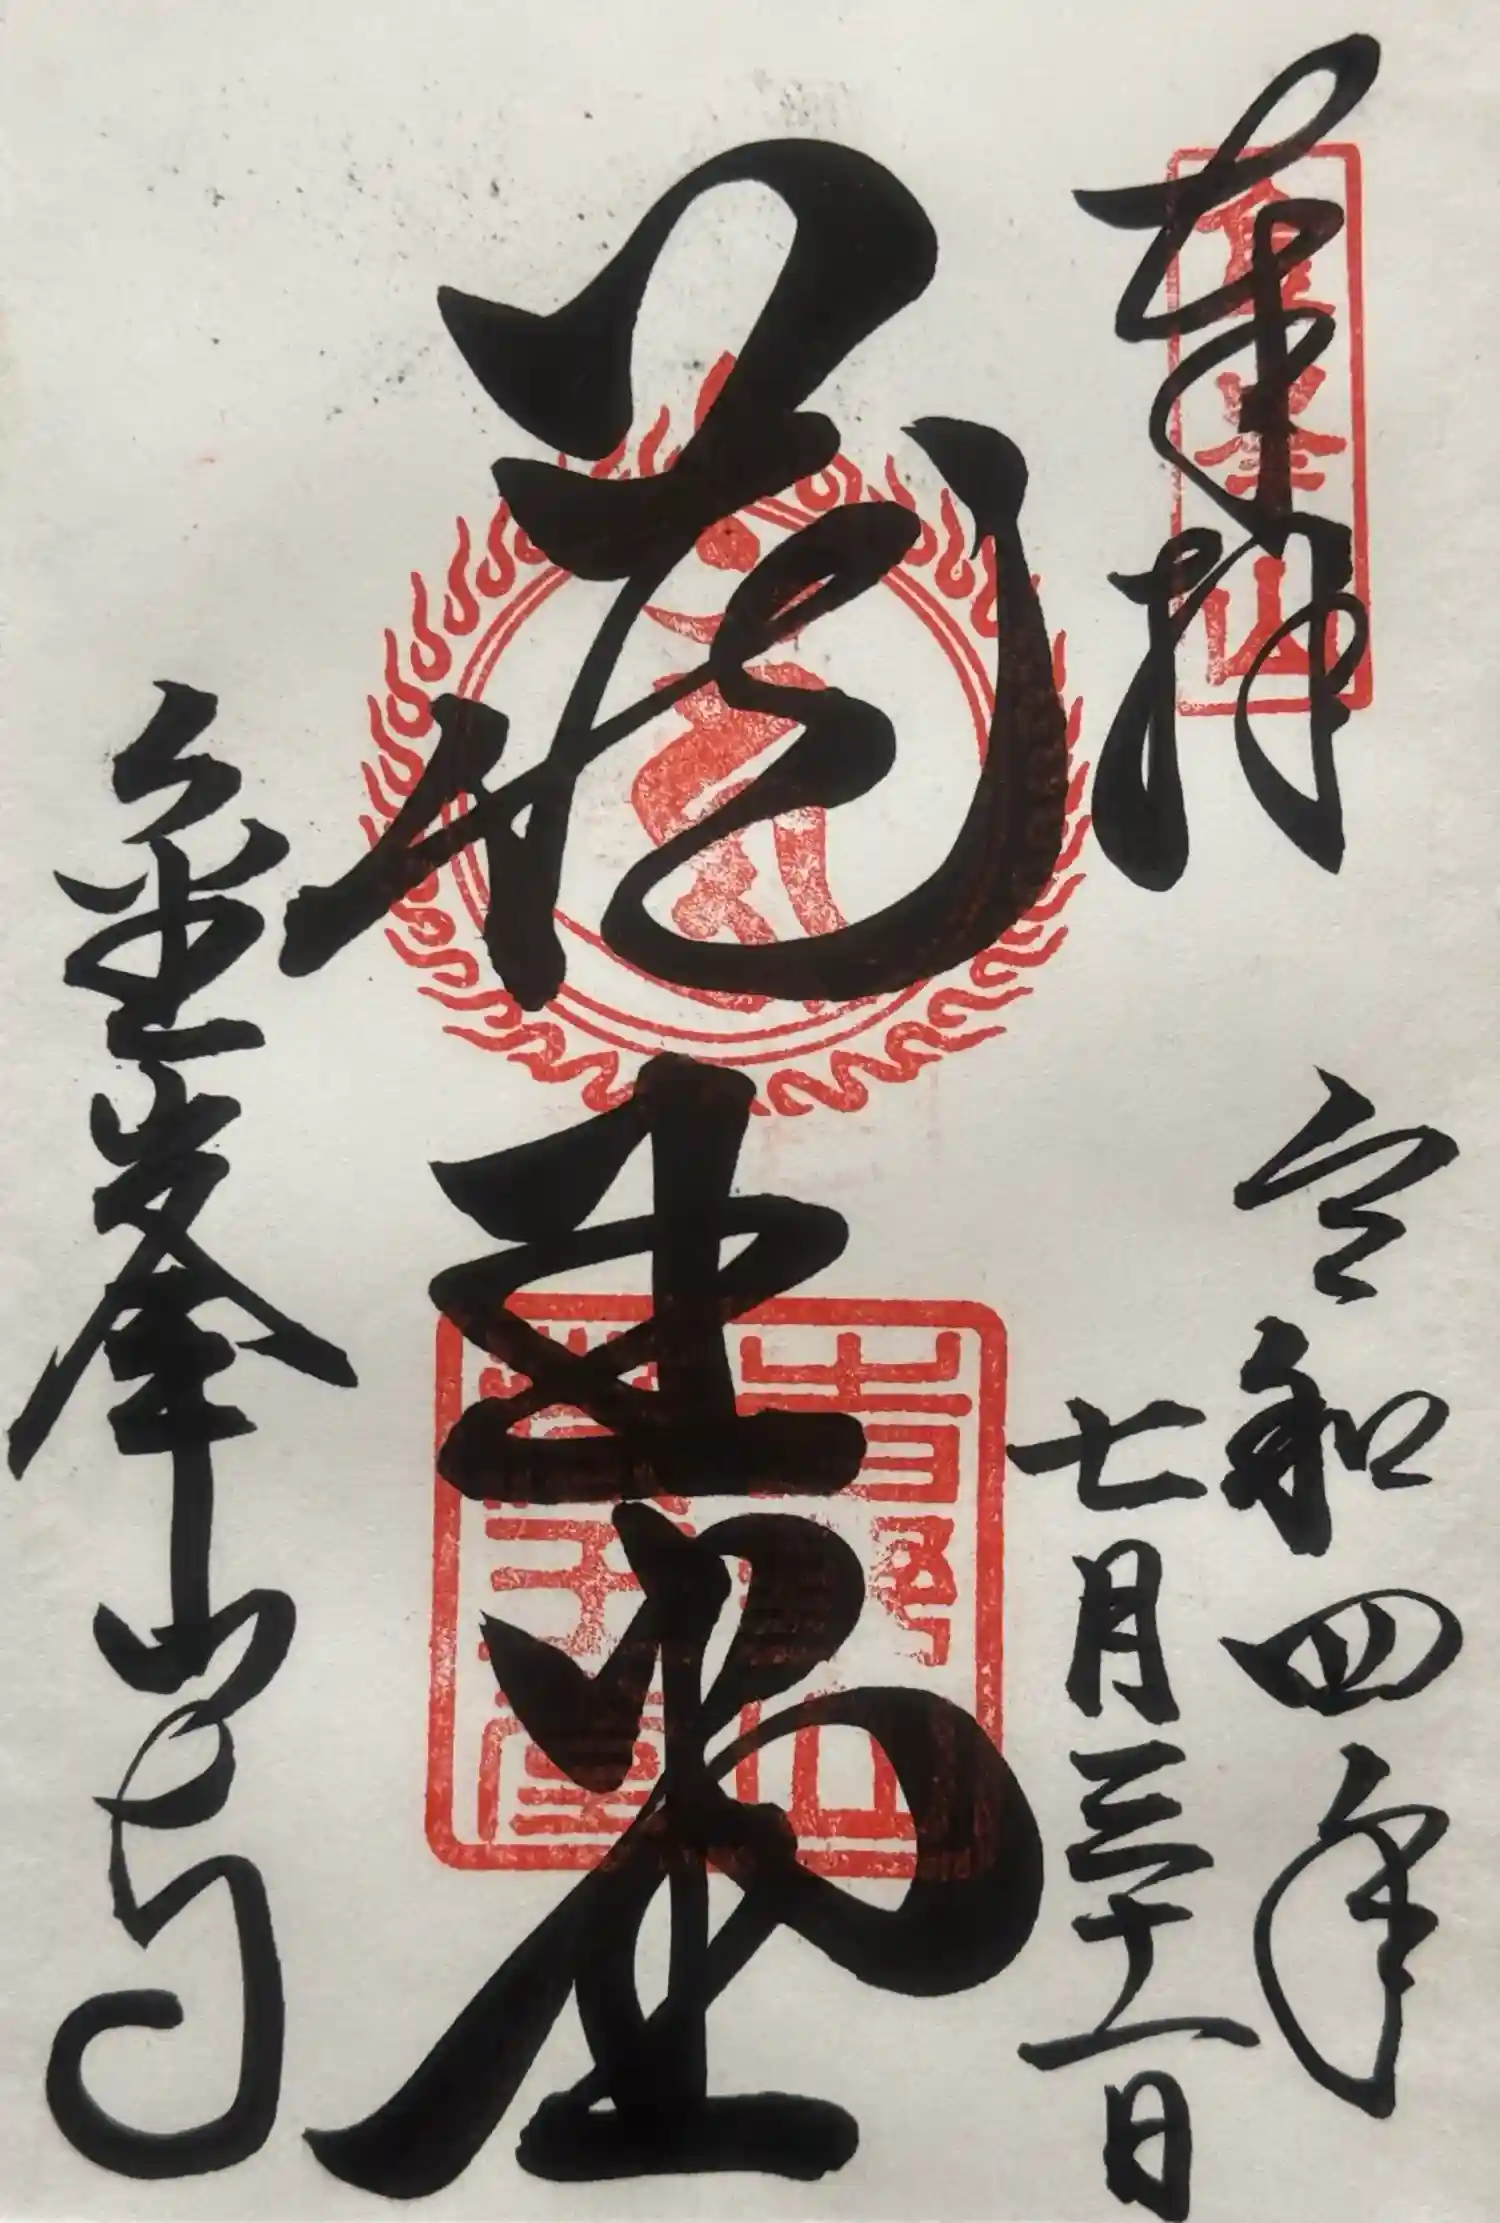 奉拝
金峯山
令和四年
七月三十一日
蔵王堂
金峯山寺